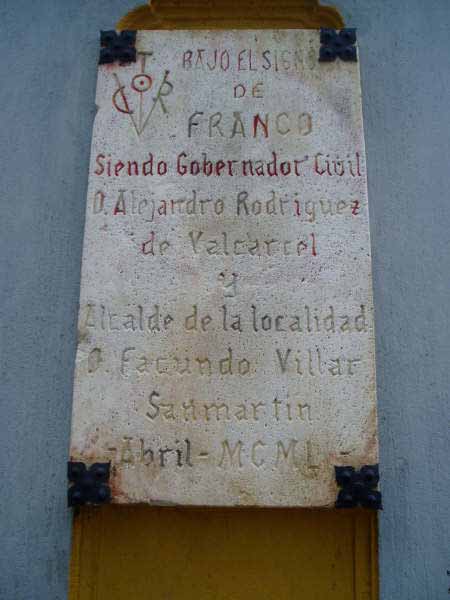 BAJO EL SIGNO
DE
FRANCO
Siendo Gobernador Civil
D. Alejandro Rodriguez
de Valcarcel
y
Alcalde de la localidad
D. Facundo Villar
Sanmartin
-Abril-MCML-